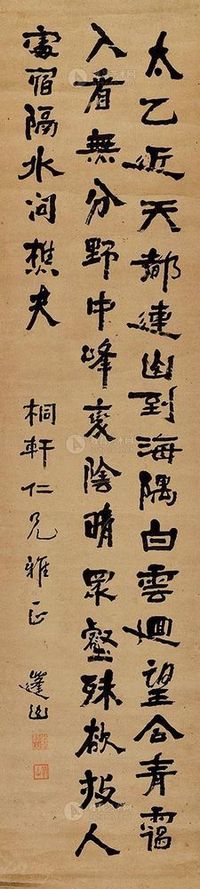 太乙近天都連山到海隅白雲迴望合青靄
入看無分野中峰變陰晴眾壑殊欲投人
處宿隔水問樵夫
桐軒仁兄雅正
蓬山